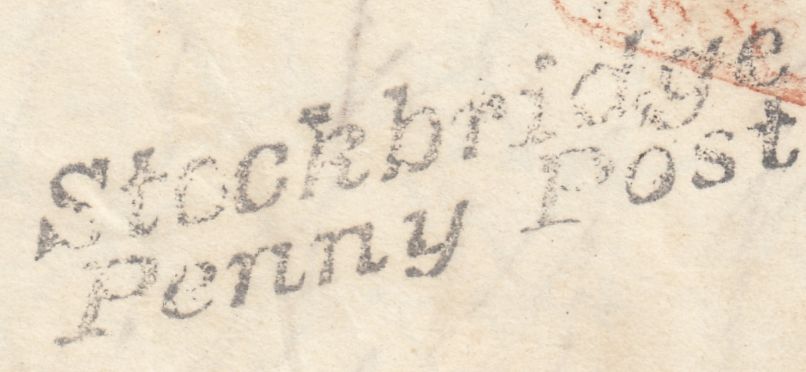 Stockbridge
Penny Post